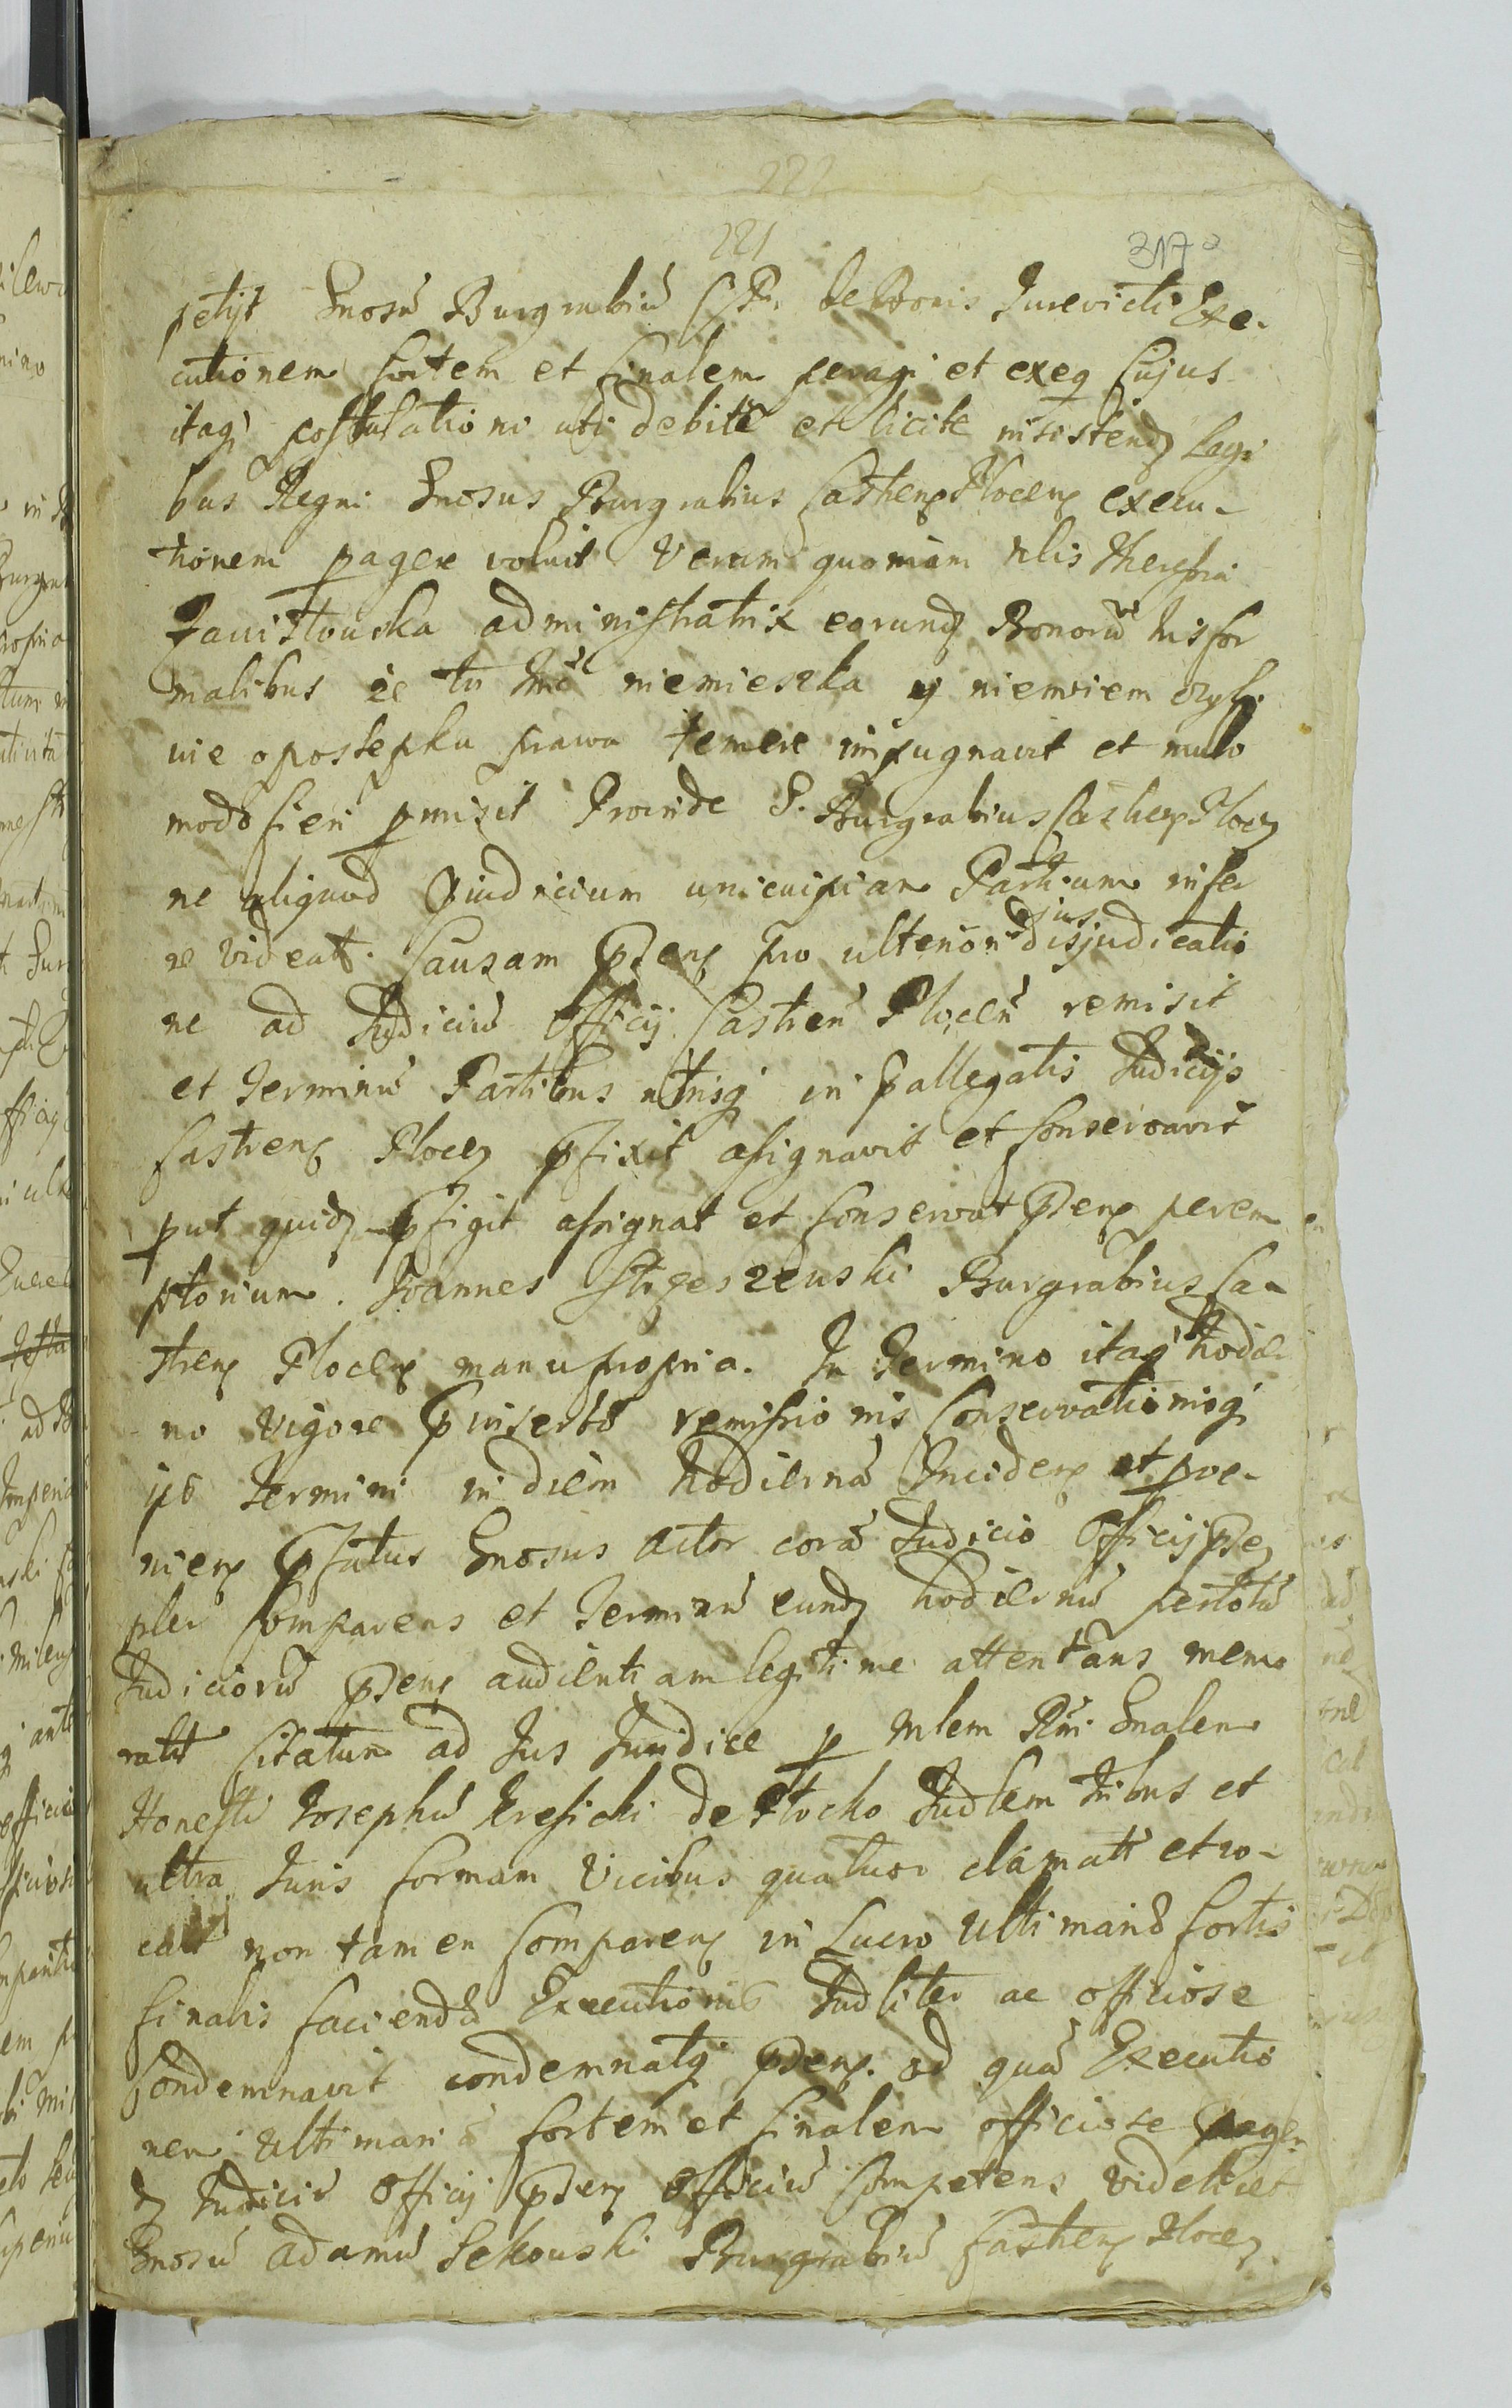 222
221
317
petijt Gnosũ Burgrabiũ C. P. de Bonis Jurevicti Exe-
cutionem fortem et finalem peragi et exeq Cujus
itaq postulationi uti debitè et licite insistend Legi
bus Regni Gnosus Burgrabius Castren Plocen execu-
tionem pagere voluit Verum quoniam Nlis Theresia
Zawistowska administratrix eorund Bonorũ his for
malibus ze tu Jmc niemieszka y niewiem
nie opostepku prawa temere impugnavit et nullo
modo fieri pmisit Proinde G. Burgrabius Castren Plocen
ne aliquod Pjudicium unicuipiam Partium infer
re videat. Causam psen pro ulteriori ejus disjudicatio
ne ad Judiciũ Officij Castren Plocen remisit
et Terminũ Partibus utrisq in pallegatis Judicijs
Castren Plocen pfixit assignavit et Conservavit
put quid pfigit assignat et Conservat psen perem
ptorium. Joannes Burgrabius Ca-
stren Plocen manupropria. In Termino itaq hodier
no vigore pinserto remissionis Conservationisq
ips Termini in diem hodiernã Inciden et pve-
nien pfatus Gnosus Actor corã Judicio Officij psen
pler Comparens et Terminũ eund hodiernũ pertotũ
Judiciorũ psen audientiam legitime attentans memo
ratũ Citatum ad Jus Juridice p Mlem Rni Gnalem
Honestũ Josephũ de Plocko Judlem tribus et
ultra Juris formam Vicibus quatuor clamatũ et vo-
catũ non tamen Comparen in Lucro Ultimariæ fortis
finalis faciendæ Executionis Judliter ac officiose
Condemnavit condemnatq psen. ad quã Executio
nem Ultimariã fortem et finalem officiose page-
d Judiciũ Officij psen Officiũ Competens videlicet
Gnosũ Adamũ Sekowski Burgrabiũ Castren Plocen